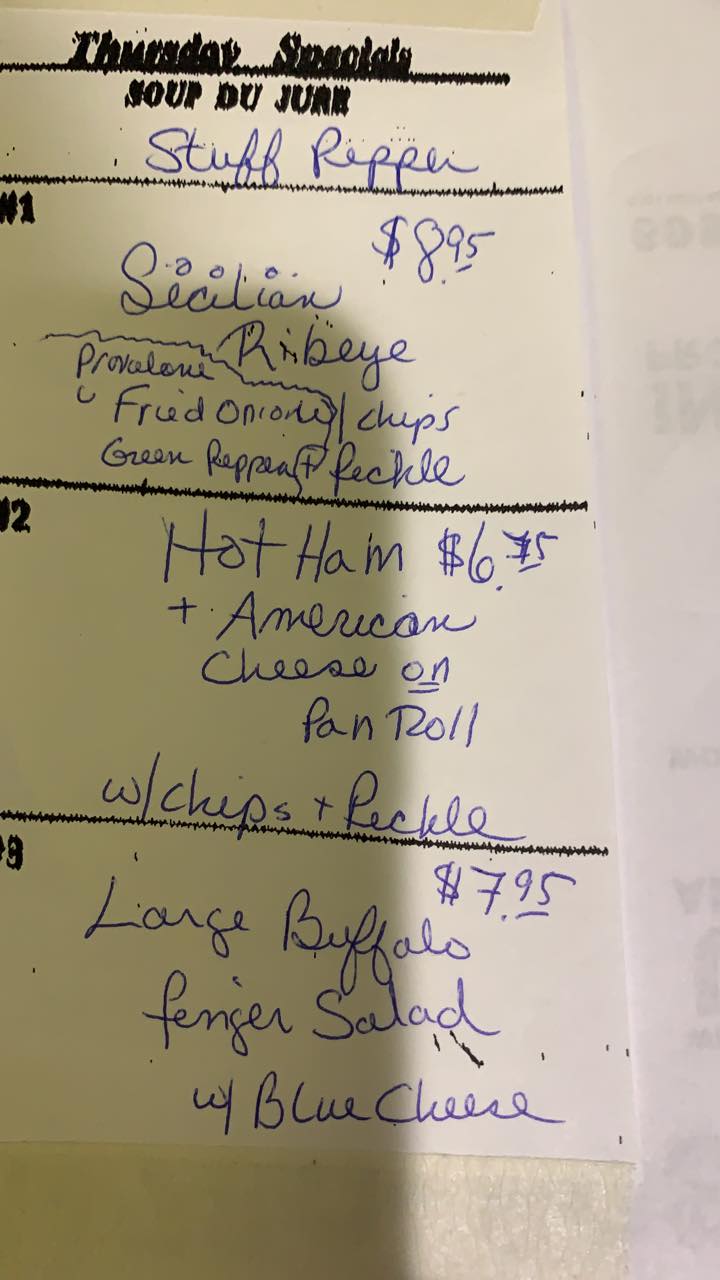 Thursday Specials
SOUP DU JURE
Stuff Pepper
#1
$8.95
Sicilian
Ribeye
Provalone
Fried Onions / chips
Green Peppers + Peckle
#2
Hot Ham $6.75
+ American
Cheese on
Pan Roll
w/chips + Peckle
#3
$7.95
Large Buffalo
fenger Salad
w/ Blue Cheese